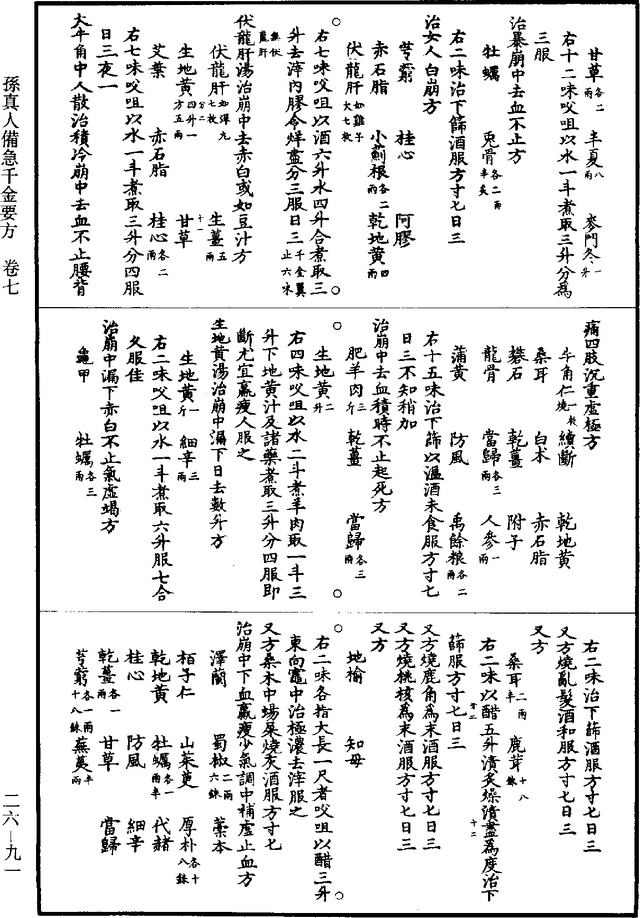 甘草各二兩　半夏八兩　麥門冬一升
右十二味㕮咀以水一斗煮取三升分爲
三服
治暴崩中去血不止方
牡蠣　兎骨各二兩半炙
右二味治下篩酒服方寸七日三
治女人白崩方
芎藭　桂心　阿膠
赤石脂　小薊根各二兩　乾地黃四兩
伏龍肝如雞子大七枚
右七味㕮咀以酒六升水四升合煮取三
升去滓內膠令烊盡分三服日三千金翼止六味
無伏龍肝
伏龍肝湯治崩中去赤白或如豆汁方
伏龍肝如彈丸七枚　生薑五兩
生地黃四升一方五兩　甘草
艾葉　赤石脂　桂心各二兩
右七味㕮咀以水一斗煮取三升分四服
日三夜一
大牛角中人散治積冷崩中去血不止腰背
痛四肢沉重虛極方
牛角仁一枚燒　續斷　乾地黃
桑耳　白朮　赤石脂
礬石　乾薑　附子
龍骨　當歸各三兩　人參一兩
蒲黃　防風　禹餘粮各二兩
右十五味治下篩以溫酒未食服方寸七
日三不知稍加
治崩中去血積時不止起死方
肥羊肉三斤　乾薑　當歸各三兩
生地黃二升
右四味㕮咀以水二斗煮羊肉取一斗三
升下地黃汁及諸藥煮取三升分四服即
斷尤宜羸瘦人服之
生地黃湯治崩中漏下日去數升方
生地黃一斤　細辛三兩
右二味㕮咀以水一斗煮取六升服七合
久服佳
治崩中漏下赤白不止氣虛竭方
龜甲　牡蠣各三兩
右二味治下篩酒服方寸七日三
又方燒亂髮酒和服方寸七日三
又方
桑耳二兩半　鹿茸十八銖
右二味以醋五升漬炙燥漬盡爲度治下
篩服方寸七日三
又方燒鹿角爲末酒服方寸七日三
又方燒桃核爲末酒服方寸七日三
又方
地榆　知母
右二味各指大長一尺者㕮咀以醋三升
東向竈中治極濃去滓服之
又方桑木中蝎屎燒灰酒服方寸七
治崩中下血羸瘦少氣調中補虛止血方
澤蘭　蜀椒二兩六銖　藁本
栢子仁　山茱萸　厚朴各十八銖
乾地黃　牡蠣各一兩半　代赭
桂心　防風　細辛
乾薑各一兩　甘草　當歸
芎藭各一兩十八銖　蕪荑半兩
孫真人備急千金要方　卷七
二六—九一